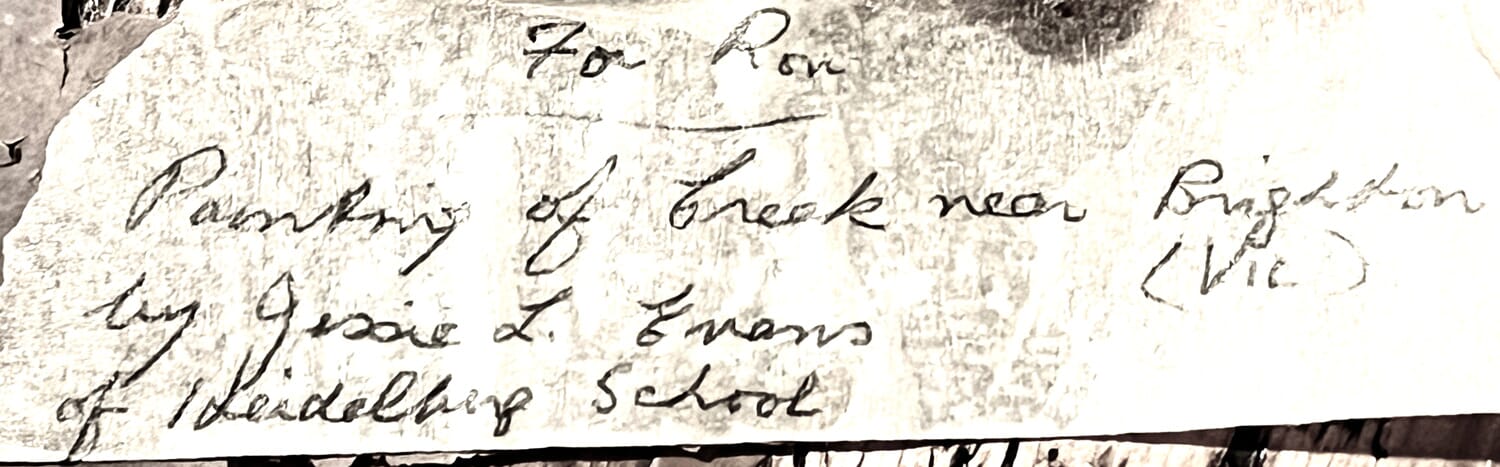 For Ron
Painting of Creek near Brighton
(Vic)
by Jessie L. Evans
of Heidelberg School